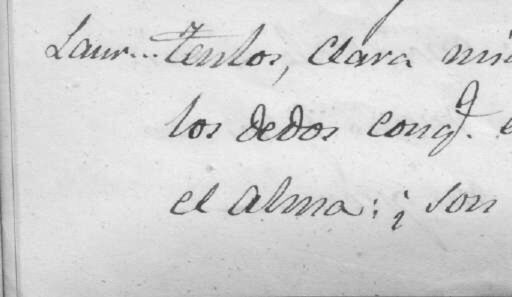 Laur... Tenlos, Clara mi
los dedos conq.
el alma: ¡ son